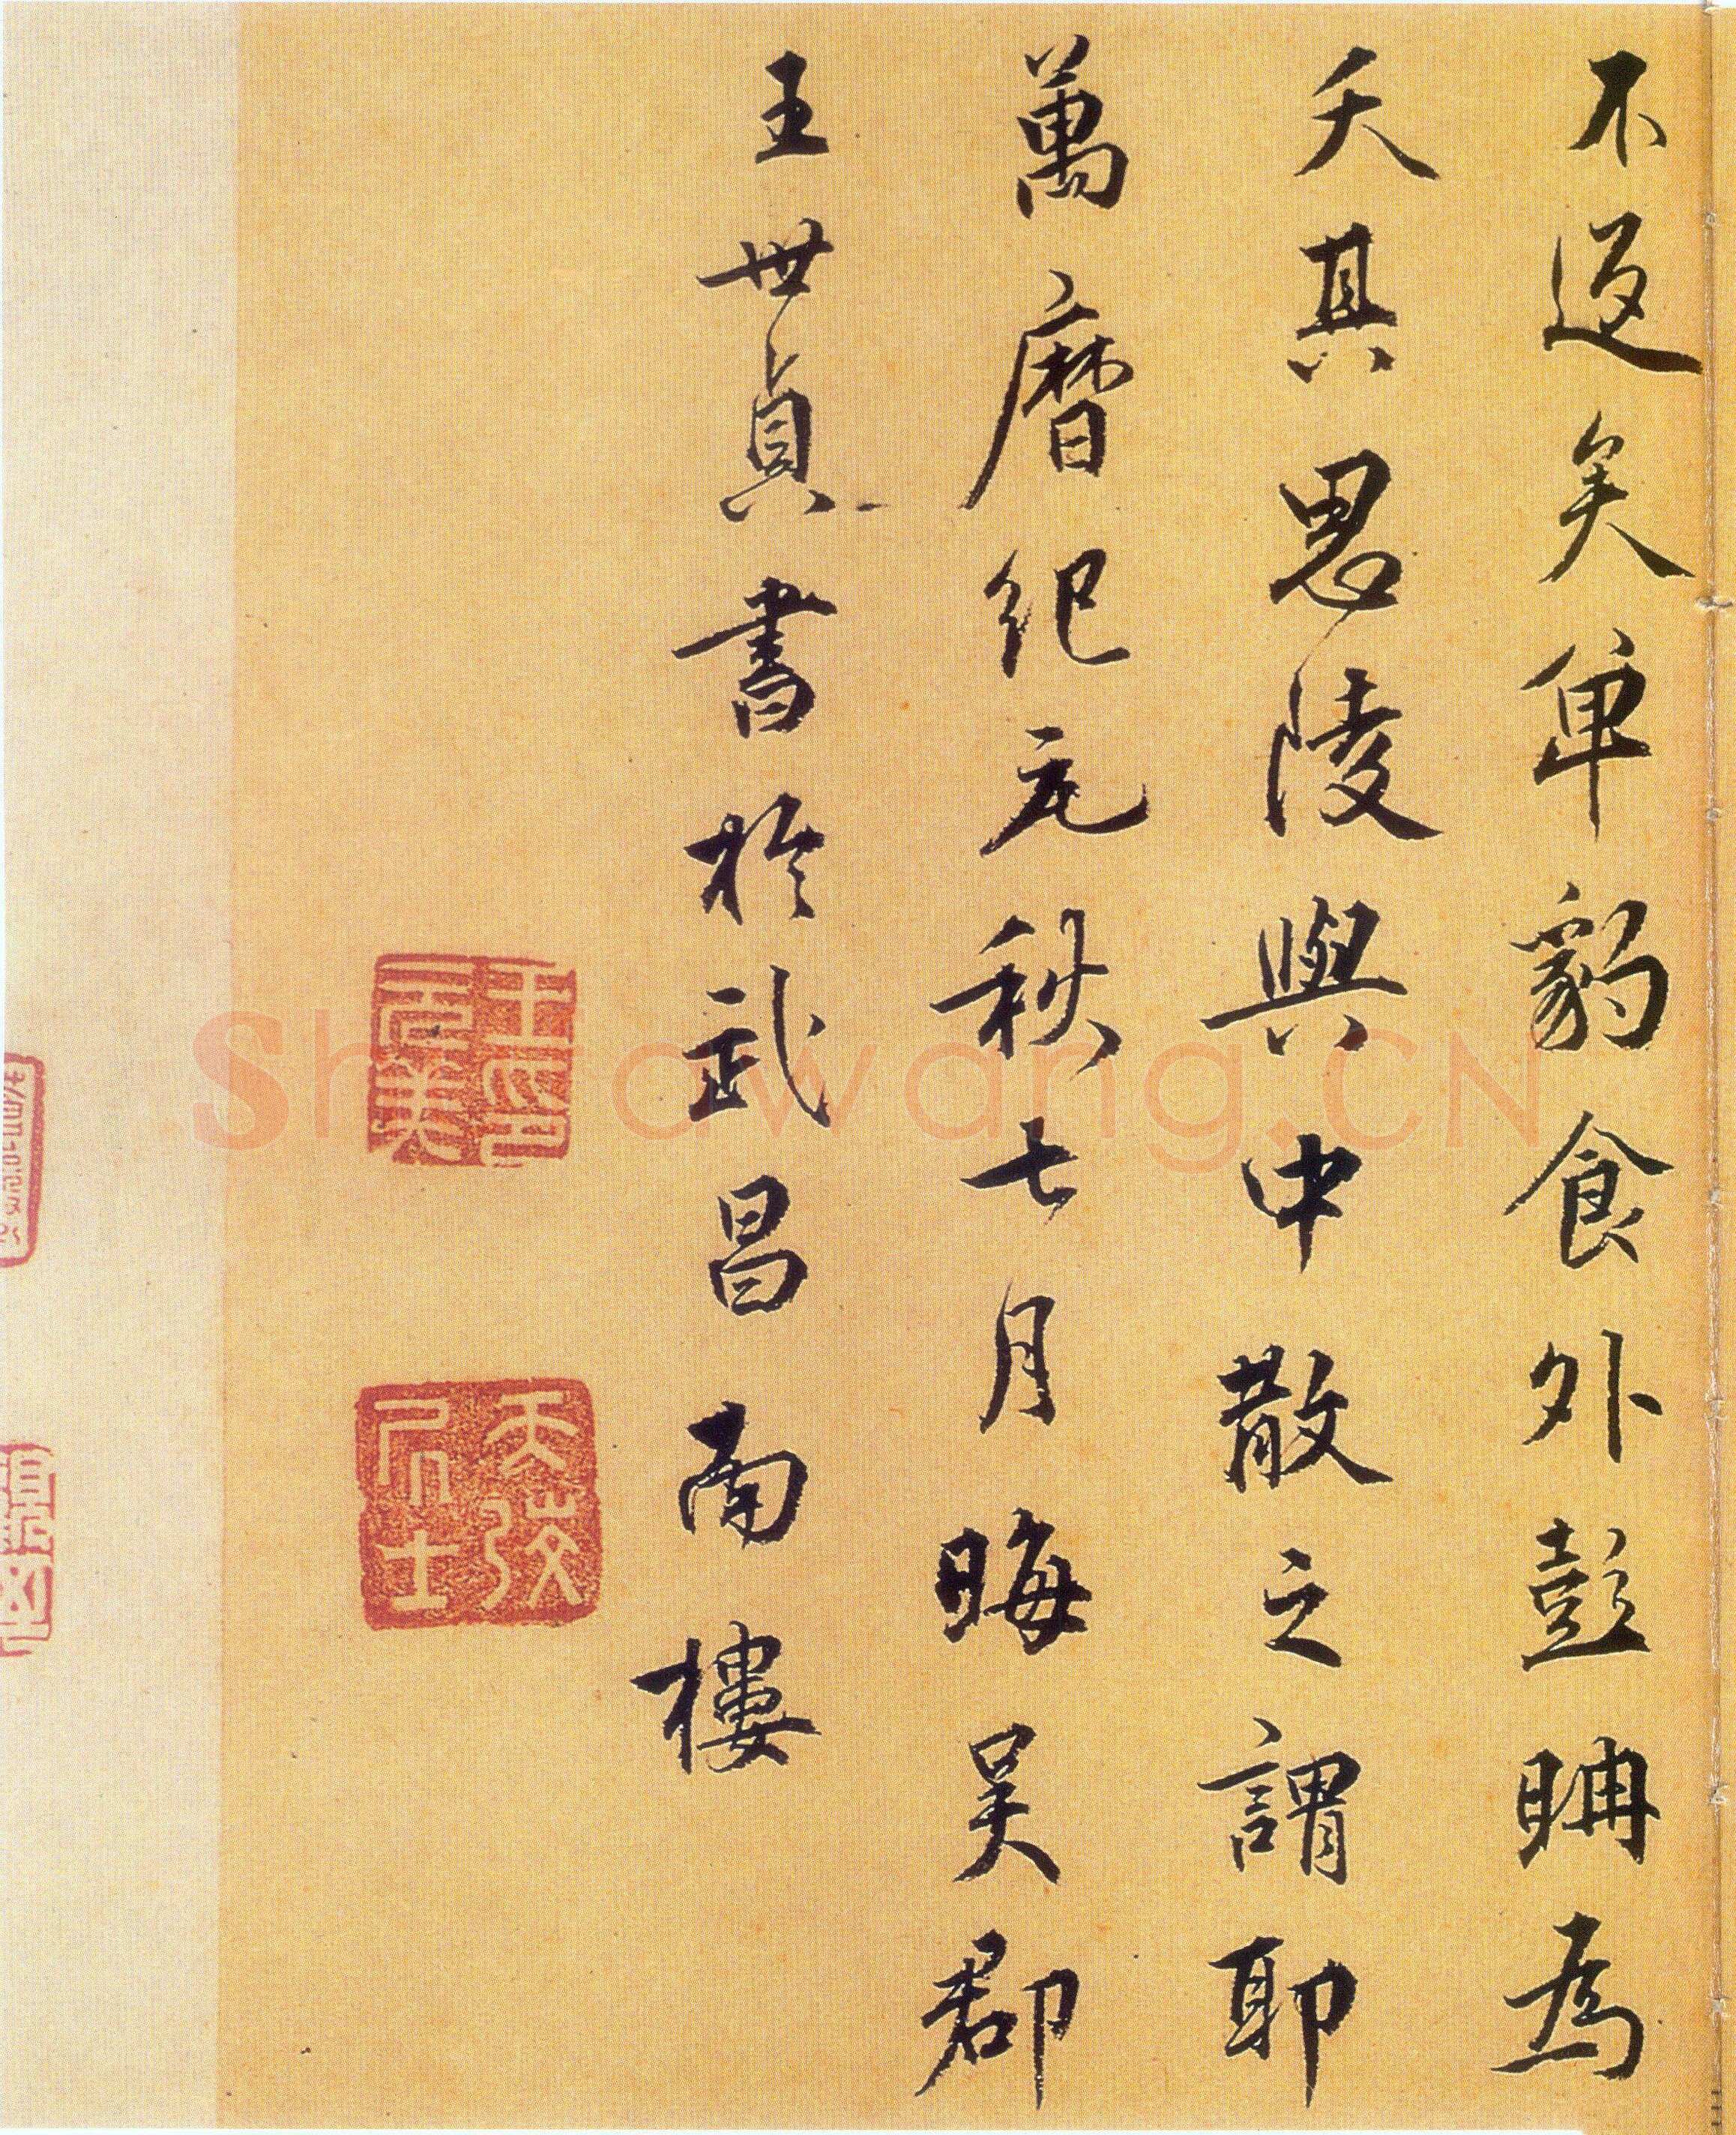 不返矣单豹食外彭聃為
夭其思陵與中散之謂耶
萬暦紀元秋七月晦吳郡
王世貞書於武昌南樓
王印元美
天弢居士
Shufawang.CN